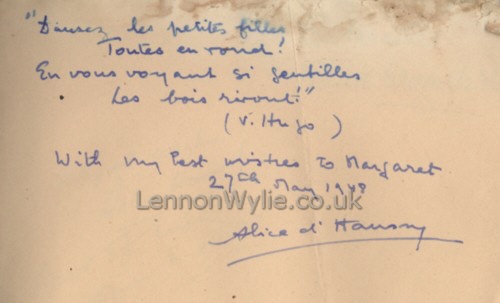 "Dansez, les petites filles
Toutes en rond!
En vous voyant si gentilles
Les bois riront!"
(V. Hugo)
With my best wishes to Margaret
27th May 1948
LennonWylie.co.uk
Alice d'